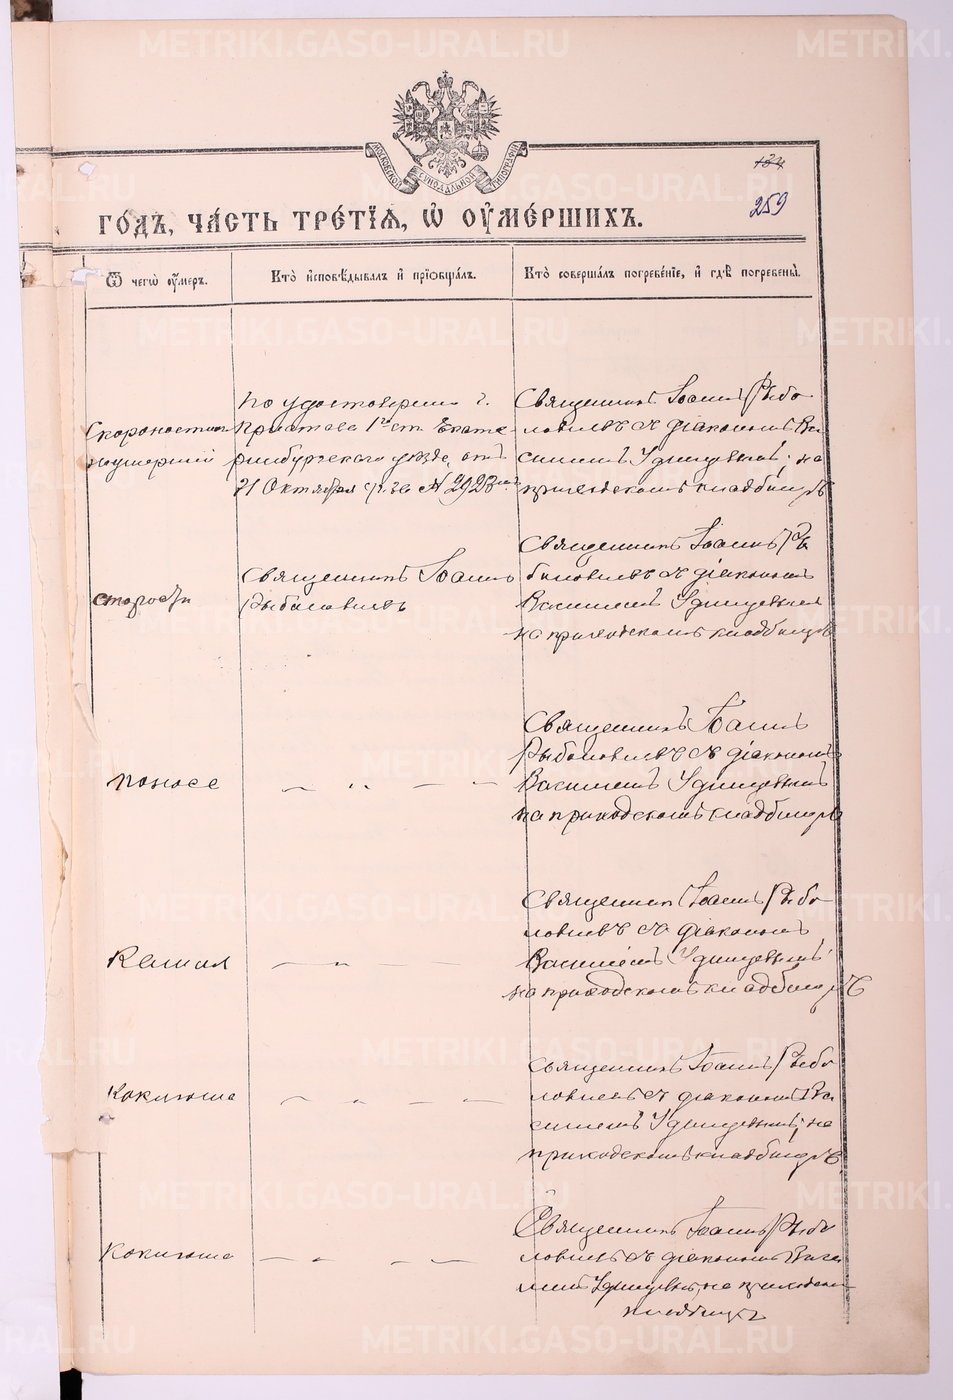 METRIKI.GASO-URAL.RU
МОСКОВСКОЙ СѴНОДАЛЬНОЙ ТИПОГРАФІИ
259
ГО́ДЪ, ЧА́СТЬ ТРЕ́ТЇѦ, Ѡ҆ ОУ҆МЕ́РШИХЪ.
Ѿ чегѡ̀ оу҆́меръ.
Кто̀ и҆сповѣ́дывалъ и҆ прїѡбща́лъ.
Кто̀ соверша́лъ погребе́нїе, и҆ гдѣ̀ погребены̀.
Скоропостижно
умерший
по удостоверению г.
Пристава 1го ст. Екате-
ринбургского уезда, отъ
21 Октября с/г. за № 2923мъ
Священникъ Іоаннъ Рыбо
ловлевъ съ діакономъ Ва
силіемъ Удинцевымъ; на
приходскомъ кладбищѣ
старости
Священникъ Іоаннъ
Рыболовлевъ
Священникъ Іоаннъ Ры
боловлевъ съ діакономъ
Василіемъ Удинцевымъ
на приходскомъ кладбищѣ
поноса
Священникъ Іоаннъ
Рыболовлевъ съ діакономъ
Василіемъ Удинцевымъ
на приходскомъ кладбищѣ
Кашля
Священникъ Іоаннъ Рыбо
ловлевъ съ діакономъ
Василіемъ Удинцевымъ
на приходскомъ кладбищѣ
Коклюша
Священникъ Іоаннъ Рыбо
ловлевъ съ діакономъ Ва
силіемъ Удинцевымъ; на
приходскомъ кладбищѣ
Коклюша
Священникъ Іоаннъ Рыбо
ловлевъ съ діакономъ Васи
ліемъ Удинцевымъ, на приходском
кладбищѣ